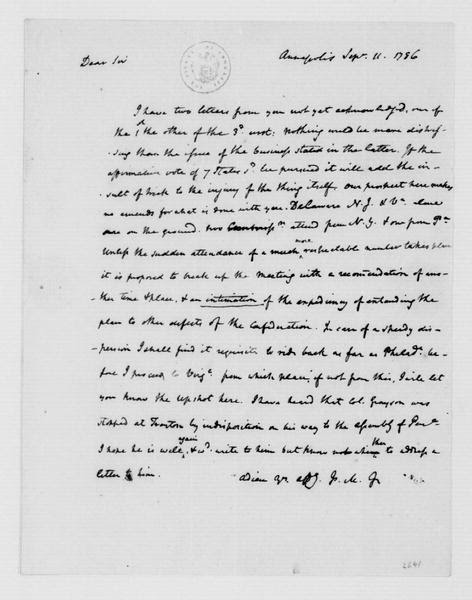 Annapolis Sepr. 11. 1786
Dear Sir
I have two letters from you not yet acknowledged, one of
the 1st the other of the 3d inst: Nothing could be more distres-
sing than the issue of the business stated in the latter. If the
affirmative vote of 7 States sd. be pursued it will add the in-
sult of trick to the injury of the thing itself. Our prospect here makes
no amends for what is done with you. Delaware N. J. & Va. alone
are on the ground. two Commissrs. attend from N. Y. & one from Pa.
Unless the sudden attendance of a much more respectable number takes place
it is proposed to break up the Meeting with a recommendation of ano-
ther time & place, & an intimation of the expediency of extending the
plan to other defects of the Confederation. In case of a speedy dis-
persion I shall find it requisite to ride back as far as Philada. be-
fore I proceed to Virga. from which place, if not from this, I will let
you know the upshot here. I have heard that Col. Grayson was
stopped at Trenton by indisposition on his way to the Assembly of Pena.
I hope he is well again, & wd. write to him but know not whither to address a
letter to him.
Adieu Yrs. affy. J. M. Jr
2641